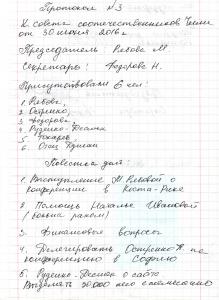 Протокол №3
К. совета соотечественников Чили
от 30 июня 2016 г.
Председатель: Рябова М.
Секретарь: Федорова Н.
Присутствовали 6 чел:
1. Рябова,
2. Остренко,
3. Федорова,
4. Руденко-
5. Токарев,
6. 
Повестка дня:
1. Выступление М. Рябовой о
конференции в Коста-Рике
2. Помощь Наталье Ивановой
(больна раком)
3. Финансовые вопросы
4. Делегировать Остренко на
конференцию в
5. Руденко- о сайте
Выделять 30000 песо ежемесячно